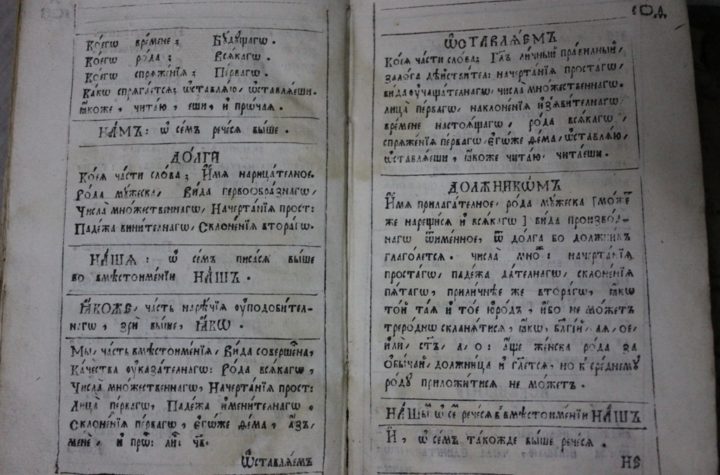 Ко́егѡ вре́мене; Бꙋ́дꙋщагѡ.
Ко́егѡ ро́да; Всѧ́кагѡ.
Ко́егѡ спрѧже́нїѧ; Пе́рвагѡ.
Ка́кѡ спрѧга́етсѧ; ѡ҆ставлѧ́ю, ѡ҆ставлѧ́еши.
ꙗ҆́коже, чита́ю, еши, и҆ прѡ́чаѧ.
НА́МЪ: ѡ҆ се́мъ рече́сѧ вы́ше.
ДО́ЛГИ
Ко́еѧ ча́сти сло́ва; И҆́мѧ нарица́телное.
Ро́да мꙋ́жеска, Ви́да первоѻбра́знагѡ,
Числа̀ мно́жественнагѡ, Начерта́нїѧ прост:
Паде́жа вини́телнагѡ, Склоне́нїѧ втора́гѡ.
НА́ШѦ: ѡ҆ се́мъ писа́сѧ вы́ше
во вмѣстоиме́нїи НА́ШЪ.
Ꙗ҆́КОЖЕ, ча́сть нарѣ́чїѧ ᲂу҆подоби́тел-
нагѡ, зрѝ вы́ше, Ꙗ҆́КѠ.
Мы̀, ча́сть вмѣстоиме́нїѧ, Ви́да соверше́нна,
Ка́чества ᲂу҆каза́телнагѡ: Ро́да всѧ́кагѡ,
Числа̀ мно́жественнагѡ, Начерта́нїѧ прост:
Лица̀ пе́рвагѡ, Паде́жа и҆мени́телнагѡ,
Склоне́нїѧ пе́рвагѡ, є҆гѡ́же ѳе́ма, а҆́зъ,
менѐ, и҆ прѡ́ч:
Ѡ҆ставлѧ́емъ
ѠСТАВЛѦ́ЕМЪ
Ко́еѧ ча́сти сло́ва; Гл҃ъ ли́чный пра́вилный,
зало́га дѣ́йствител: начерта́нїѧ проста́гѡ,
ви́да ᲂу҆чаща́телнагѡ, числа̀ мно́жественнагѡ.
лица̀ пе́рвагѡ, наклоне́нїѧ и҆з̾ѧви́телнагѡ
вре́мене настоѧ́щагѡ, ро́да всѧ́кагѡ,
спрѧже́нїѧ пе́рвагѡ, є҆гѡ́же ѳе́ма, ѡ҆ставлѧ́ю,
ѡ҆ставлѧ́еши, ꙗ҆́коже чита́ю чита́еши.
ДОЛЖНИКѠ́МЪ
И҆́мѧ прилага́телное, ро́да мꙋ́жеска [мо́же
же нарещи́сѧ и҆ всѧ́кагѡ] ви́да произво́д-
нагѡ ѿи҆ме́нное, ѿ до́лга бо должни́къ
глаго́летсѧ. числа̀ мно: начерта́нїѧ
проста́гѡ, паде́жа да́телнагѡ, склоне́нїѧ
пѧ́тагѡ, прили́чнѣе же втора́гѡ, ꙗ҆́кѡ
то́й та́ѧ и҆ то́е ю҆ро́дъ, и҆́бо не мо́жетъ
треро́днѡ склана́тисѧ, ꙗ҆́кѡ, бл҃гі́й, аѧ, ое,
и҆лѝ, ст҃ъ, а, о: а҆́ще же́нска ро́да за
ѻ҆бы́чай, должни́ца и҆ гл҃етсѧ, но к сре́днемꙋ
ро́дꙋ приложи́тисѧ не мо́жетъ.
НА́ШЫМ ѡ҆ се́ рече́сѧ в вмѣстоиме́нїи НА́ШЪ
И҆̀, ѡ҆ се́мъ та́кожде вы́ше рече́сѧ.
НЕ